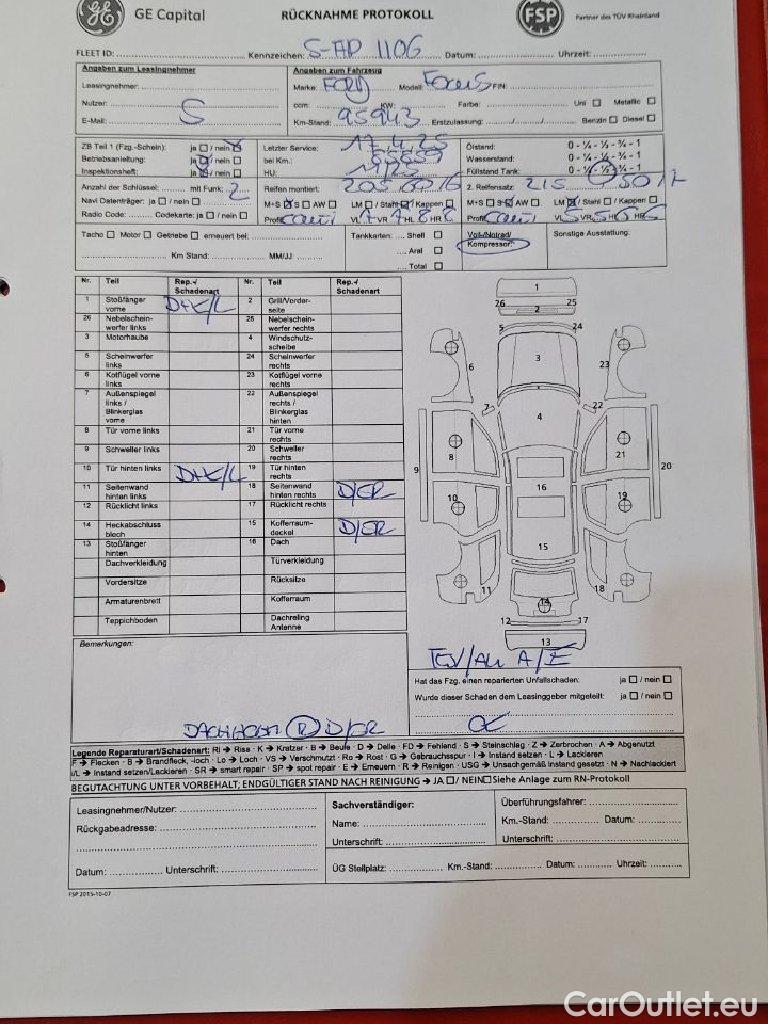 GE Capital RÜCKNAHME PROTOKOLL FSP Partner des TÜV Rheinland
FLEET ID: Kennzeichen: S-AP 1106 Datum: Uhrzeit:
Angaben zum Leasingnehmer
Leasingnehmer:
Nutzer:
E-Mail:
Angaben zum Fahrzeug
Marke: FORD Modell: Focus FIN:
ccm: KW: Farbe: Uni ☐ Metallic ☐
Km-Stand: 95943 Erstzulassung: Benzin ☐ Diesel ☐
ZB Teil 1 (Fzg.-Schein): ja ☐ / nein
Betriebsanleitung: ja / nein ☐
Inspektionsheft: ja / nein ☐
Letzter Service: 17.4.25
bei Km.:
HU:
Ölstand: 0 - ¼ - ½ - ¾ - 1
Wasserstand: 0 - ¼ - ½ - ¾ - 1
Füllstand Tank: 0 - ¼ - ½ - ¾ - 1
Anzahl der Schlüssel: mit Funk: 2
Navi Datenträger: ja ☐ / nein ☐
Radio Code: Codekarte: ja ☐ / nein ☐
Reifen montiert: 205 60 16
M+S ☒ S ☒ AW ☐ LM ☐ / Stahl / Kappen
Profil: VL 7 VR 7 HL 8 HR 8
2. Reifensatz: 215 50 17
M+S ☐ S ☒ AW ☐ LM ☒ / Stahl ☐ / Kappen ☐
Profil: VL 5 VR 5 HL HR
Tacho ☐ Motor ☐ Getriebe ☐ erneuert bei:
Km Stand: MM/JJ
Tankkarten: Shell ☐
Aral ☐
Total ☐
Voll-/Notrad/
Kompressor:
Sonstige Ausstattung:
Nr. Teil Rep.-/ Schadenart Nr. Teil Rep.-/ Schadenart
1 Stoßfänger vorne D+E/L 2 Grill/Vorderseite
26 Nebelscheinwerfer links 25 Nebelscheinwerfer rechts
3 Motorhaube 4 Windschutzscheibe
5 Scheinwerfer links 24 Scheinwerfer rechts
6 Kotflügel vorne links 23 Kotflügel vorne rechts
7 Außenspiegel links / Blinkerglas vorne 22 Außenspiegel rechts / Blinkerglas hinten
8 Tür vorne links 21 Tür vorne rechts
9 Schweller links 20 Schweller rechts
10 Tür hinten links D+E/L 19 Tür hinten rechts
11 Seitenwand hinten links 18 Seitenwand hinten rechts D/ER
12 Rücklicht links 17 Rücklicht rechts
14 Heckabschlussblech 15 Kofferraumdeckel D/ER
13 Stoßfänger hinten 16 Dach
Dachverkleidung Türverkleidung
Vordersitze Rücksitze
Armaturenbrett Kofferraum
Teppichboden Dachreling Antenne
1
26 25
2
5 24
6 3 23
7 4 22
8 21
9 20
10 16 19
15
11 18
14
12 17
13
Bemerkungen:
Hat das Fzg. einen reparierten Unfallschaden: ja ☐ / nein ☐
Wurde dieser Schaden dem Leasinggeber mitgeteilt: ja ☐ / nein ☐
Legende Reparaturart/Schadenart: RI → Riss · K → Kratzer · B → Beule · D → Delle · FD → Fehlend · S → Steinschlag · Z → Zerbrochen · A → Abgenutzt
F → Flecken · B → Brandfleck, -loch · Lo → Loch · VS → Verschmutzt · Ro → Rost · G → Gebrauchsspur · I → Instand setzen · L → Lackieren
I/L → Instand setzen/Lackieren · SR → smart repair · SP → spot repair · E → Erneuern · R → Reinigen · USG → Unsachgemäß instand gesetzt · N → Nachlackiert
BEGUTACHTUNG UNTER VORBEHALT; ENDGÜLTIGER STAND NACH REINIGUNG → JA ☐ / NEIN ☐ Siehe Anlage zum RN-Protokoll
Leasingnehmer/Nutzer:
Rückgabeadresse:
Datum: Unterschrift:
Sachverständiger:
Name:
Unterschrift:
Überführungsfahrer:
Km.-Stand: Datum:
Unterschrift:
ÜG Stellplatz: Km.-Stand: Datum: Uhrzeit:
CarOutlet.eu